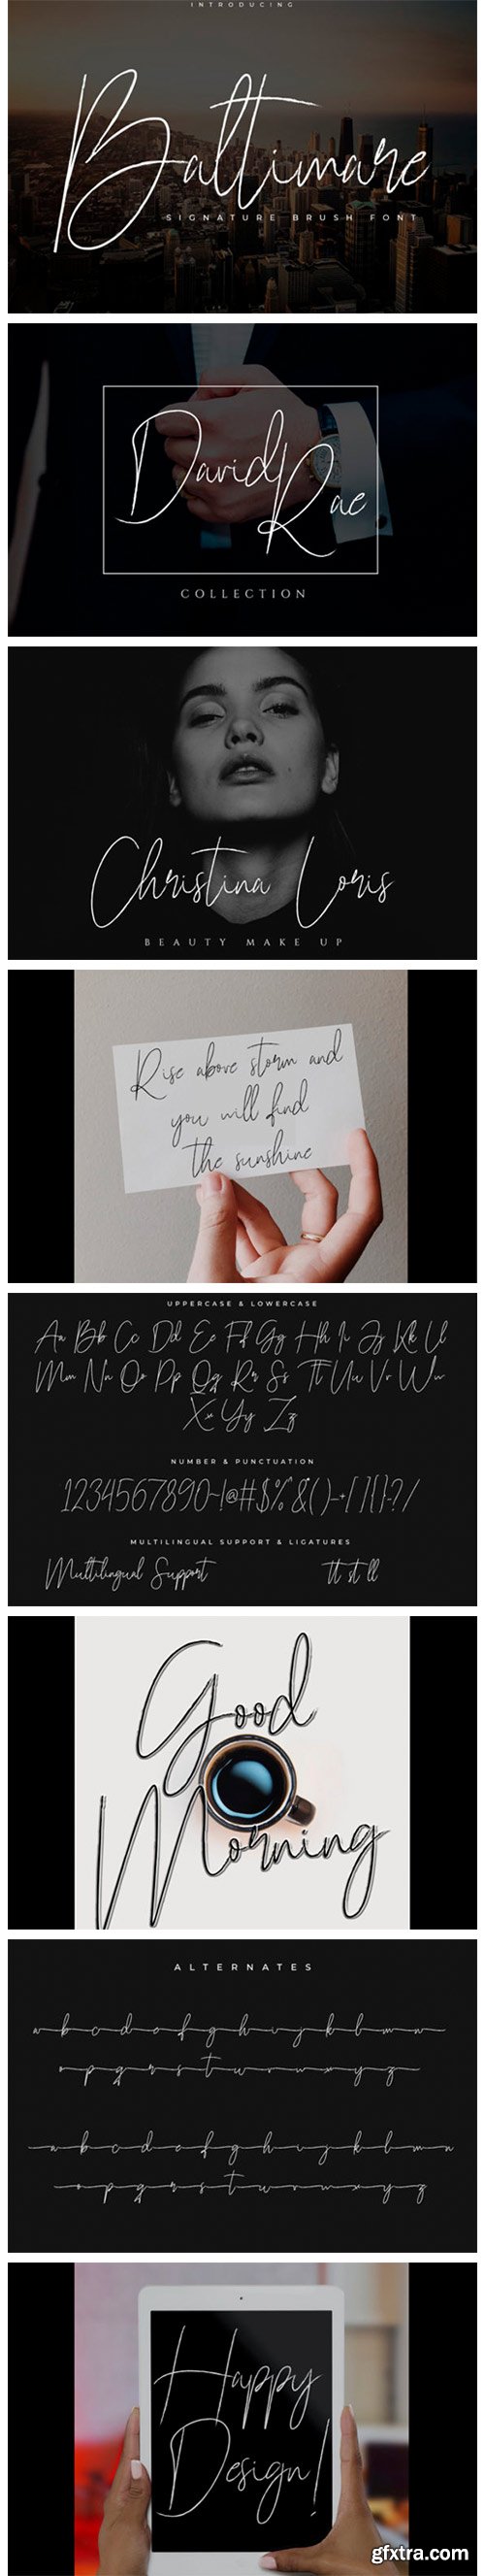 INTRODUCING
Baltimare
SIGNATURE BRUSH FONT
David Rae
COLLECTION
Christina Loris
BEAUTY MAKE UP
Rise above storm and
you will find
the sunshine
UPPERCASE & LOWERCASE
Aa Bb Cc Dd Ee Ff Gg Hh Ii Jj Kk Ll
Mm Nn Oo Pp Qq Rr Ss Tt Uu Vv Ww
Xx Yy Zz
NUMBER & PUNCTUATION
1234567890~!@#$%^&()-+[]{}:?/
MULTILINGUAL SUPPORT & LIGATURES
Multilingual Support
tt st ll
Good
Morning
ALTERNATES
a b c d e f g h i j k l m n
o p q r s t u v w x y z
a b c d e f g h i j k l m n
o p q r s t u v w x y z
Happy
Design!
gfxtra.com